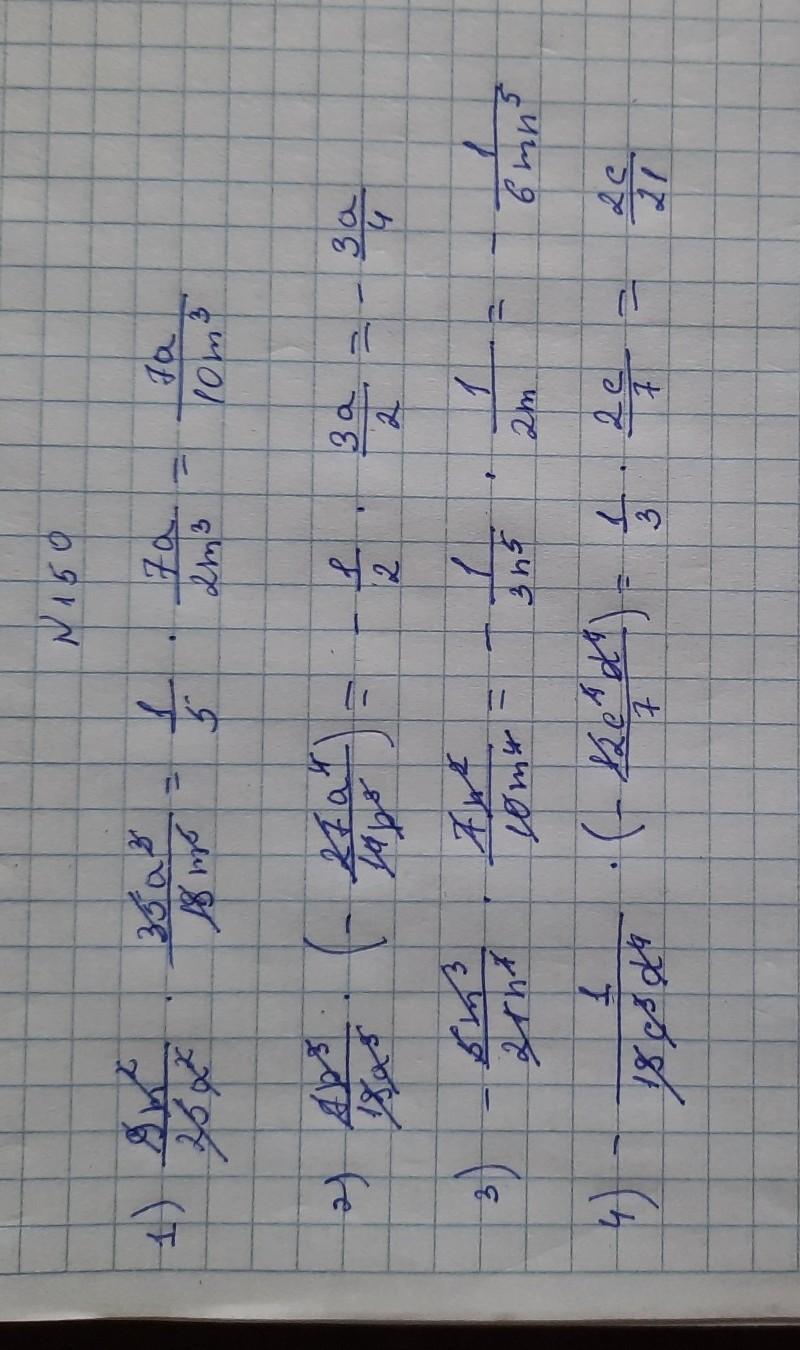 N 150
1) 9m²/25a² · 35a³/18m⁵ = 1/5 · 7a/2m³ = 7a/10m³
2) b³/18a³ · (- 27a⁴/14b³) = - 1/2 · 3a/2 = - 3a/4
3) - 5m³/21n⁷ · 7n²/10m⁴ = - 1/3n⁵ · 1/2m = - 1/6mn⁵
4) - 1/18c³d⁴ · (- 12c⁴d⁴/7) = 1/3 · 2c/7 = 2c/21